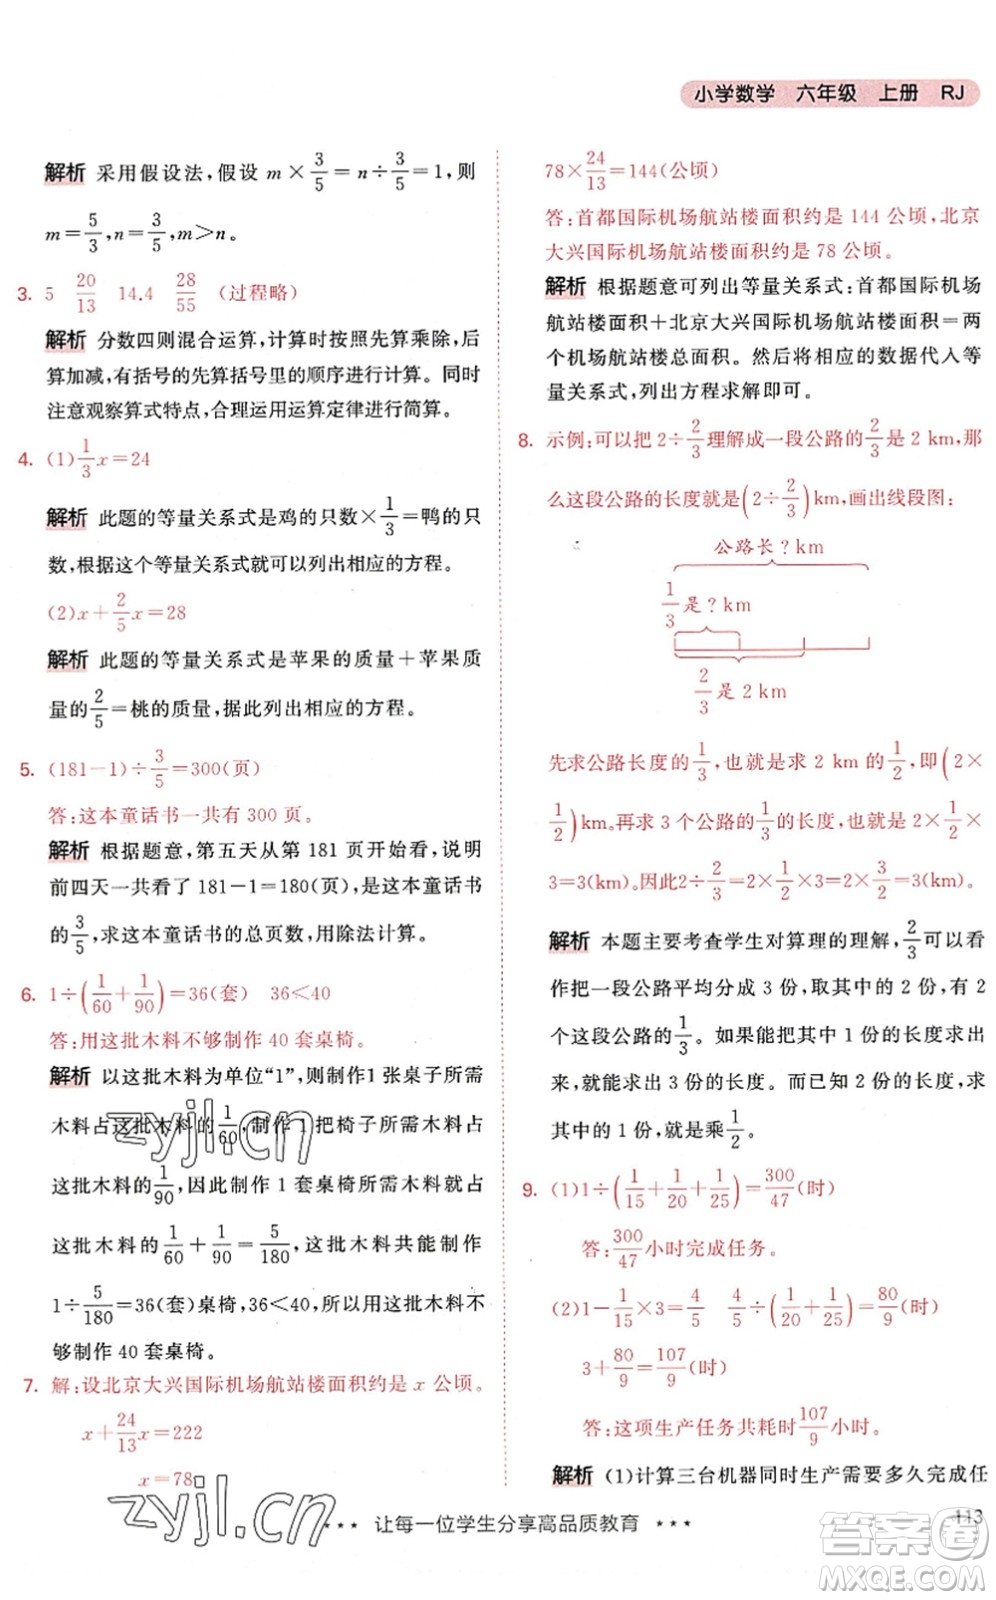 小学数学 六年级 上册 RJ
解析 采用假设法,假设 m×3/5=n÷3/5=1,则
m=5/3,n=3/5,m>n。
3. 5 20/13 14.4 28/55 (过程略)
解析 分数四则混合运算,计算时按照先算乘除,后
算加减,有括号的先算括号里的顺序进行计算。同时
注意观察算式特点,合理运用运算定律进行简算。
4. (1)1/3x=24
解析 此题的等量关系式是鸡的只数×1/3=鸭的只
数,根据这个等量关系式就可以列出相应的方程。
(2)x+2/5x=28
解析 此题的等量关系式是苹果的质量+苹果质
量的2/5=桃的质量,据此列出相应的方程。
5. (181-1)÷3/5=300(页)
答:这本童话书一共有 300 页。
解析 根据题意,第五天从第 181 页开始看,说明
前四天一共看了 181-1=180(页),是这本童话书
的3/5,求这本童话书的总页数,用除法计算。
6. 1÷(1/60+1/90)=36(套) 36<40
答:用这批木料不够制作 40 套桌椅。
解析 以这批木料为单位“1”,则制作1 张桌子所需
木料占这批木料的1/60,制作 1 把椅子所需木料占
这批木料的1/90,因此制作 1 套桌椅所需的木料就占
这批木料的1/60+1/90=5/180,这批木料共能制作
1÷5/180=36(套)桌椅,36<40,所以用这批木料不
够制作 40 套桌椅。
7. 解:设北京大兴国际机场航站楼面积约是 x 公顷。
x+24/13x=222
x=78
78×24/13=144(公顷)
答:首都国际机场航站楼面积约是 144 公顷,北京
大兴国际机场航站楼面积约是 78 公顷。
解析 根据题意可列出等量关系式:首都国际机场
航站楼面积+北京大兴国际机场航站楼面积=两
个机场航站楼总面积。然后将相应的数据代入等
量关系式,列出方程求解即可。
8. 示例:可以把 2÷2/3理解成一段公路的2/3是 2 km,那
么这段公路的长度就是(2÷2/3)km,画出线段图:
公路长?km
1/3是?km
2/3是 2 km
先求公路长度的1/3,也就是求 2 km 的1/2,即(2×
1/2)km.再求 3 个公路的1/3的长度,也就是 2×1/2×
3=3(km).因此2÷2/3=2×1/2×3=2×3/2=3(km)
解析 本题主要考查学生对算理的理解,2/3可以看
作把一段公路平均分成 3 份,取其中的 2 份,有 2
个这段公路的1/3。如果能把其中 1 份的长度求出
来,就能求出 3 份的长度。而已知 2 份的长度,求
其中的 1 份,就是乘1/2。
9. (1)1÷(1/15+1/20+1/25)=300/47(时)
答:300/47小时完成任务。
(2)1-1/15×3=4/5 4/5÷(1/20+1/25)=80/9(时)
3+80/9=107/9(时)
答:这项生产任务共耗时107/9小时。
解析 (1)计算三台机器同时生产需要多久完成任
zyjl.cn
zyjl.cn
*** 让每一位学生分享高品质教育 ***
113
答案圈
MXQE.COM